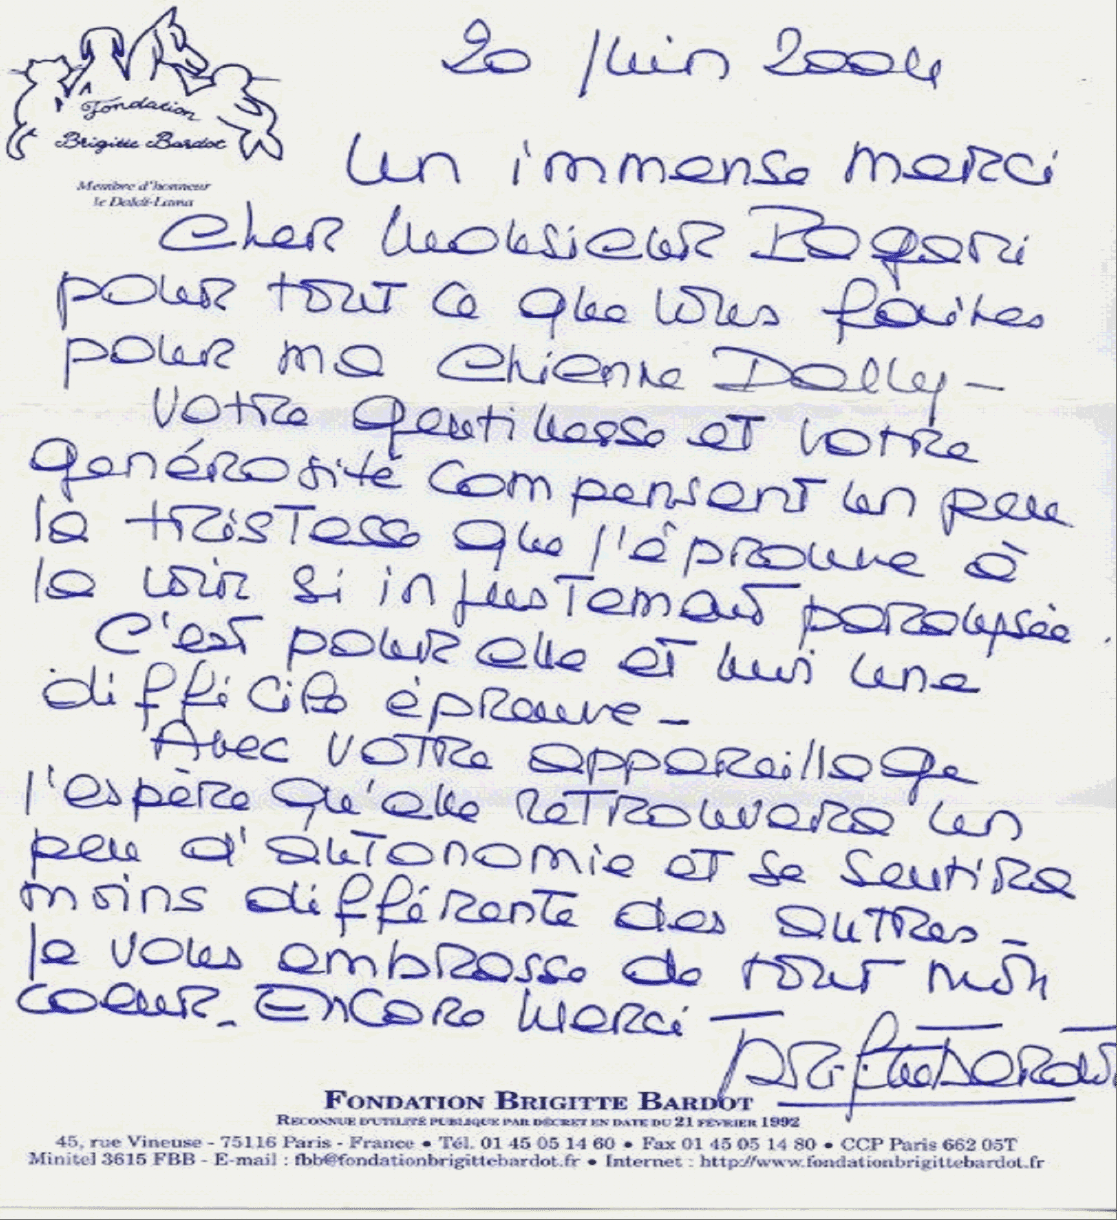 20 Juin 2004
Fondation
Brigitte Bardot
Membre d'honneur
le Dalaï-Lama
Un immense merci
Cher Monsieur Pagari
pour tout ce que vous faites
pour ma chienne Dolly -
Votre gentillesse et votre
générosité compensent un peu
la tristesse que j'éprouve à
la voir si injustement paralysée.
C'est pour elle et lui une
difficile épreuve -
Avec votre appareillage
j'espère qu'elle retrouvera un
peu d'autonomie et se sentira
moins différente des autres -
Je vous embrasse de tout mon
coeur - Encore merci -
Brigitte Bardot
FONDATION BRIGITTE BARDOT
RECONNUE D'UTILITÉ PUBLIQUE PAR DÉCRET EN DATE DU 21 FÉVRIER 1992
45, rue Vineuse - 75116 Paris - France • Tél. 01 45 05 14 60 • Fax 01 45 05 14 80 • CCP Paris 662 05T
Minitel 3615 FBB - E-mail : fbb@fondationbrigittebardot.fr • Internet : http://www.fondationbrigittebardot.fr